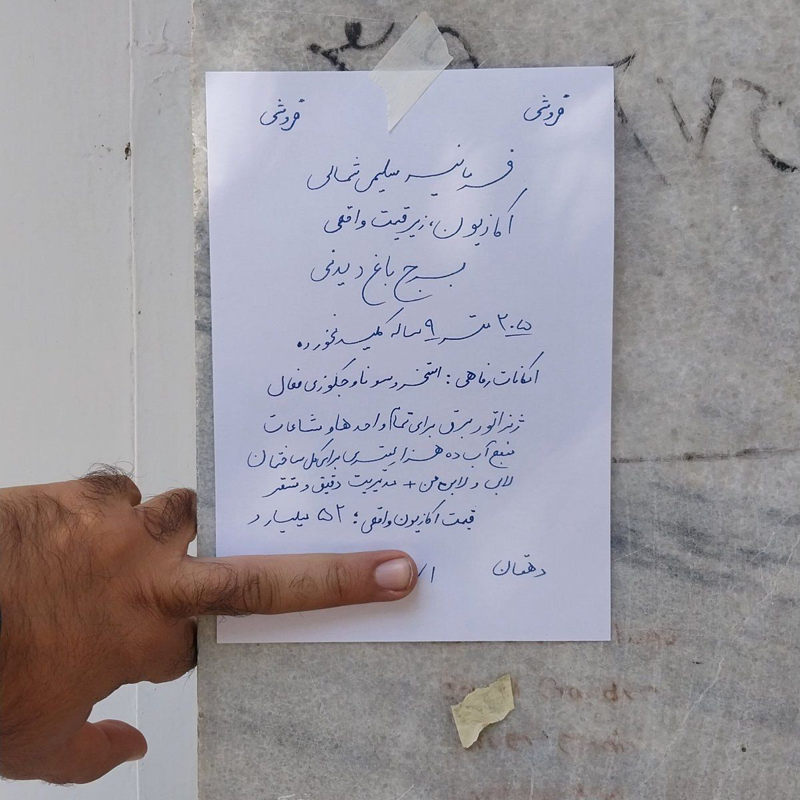 فروشی فروشی
فرمانیه سلیمی شمالی
اکازیون، زیر قیمت واقعی
برج باغ دیدنی
۲۰۵ متر ۹ ساله کلید نخورده
امکانات رفاهی: استخر و سونا و جکوزی فعال
ژنراتور برق برای تمام واحدها و مشاعات
منبع آب ده هزار لیتری برای کل ساختمان
لابی و لابی من + مدیریت دقیق و مستقر
قیمت اکازیون واقعی؛ ۵۲ میلیارد
دهقان